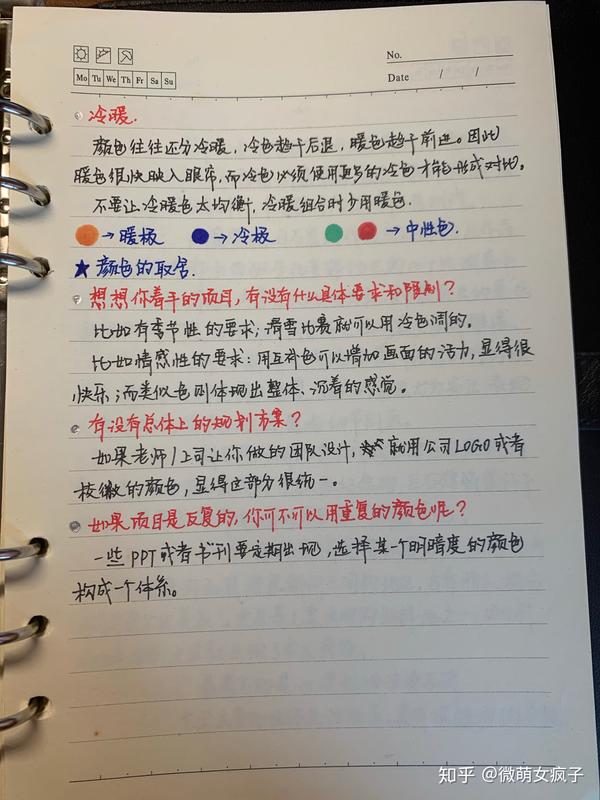 No.
Mo Tu We Th Fr Sa Su
Date / /
冷暖.
颜色往往还分冷暖，冷色趋于后退，暖色趋于前进。因此
暖色很快映入眼帘，而冷色必须使用更多的冷色才能形成对比。
不要让冷暖色太均衡，冷暖组合时少用暖色.
→暖极 →冷极 →中性色.
★颜色的取舍.
想想你着手的项目，有没有什么具体要求和限制？
比如有季节性的要求；滑雪比赛就可以用冷色调的。
比如情感性的要求：用互补色可以增加画面的活力，显得很
快乐；而类似色则体现出整体、沉着的感觉。
有没有总体上的规划方案？
如果老师/上司让你做的团队设计，就用公司LOGO或者
校徽的颜色，显得这部分很统一。
如果项目是反复的，你可不可以用重复的颜色呢？
一些PPT或者书刊要定期出现，选择某一个明暗度的颜色
构成一个体系。
知乎 @微萌女疯子